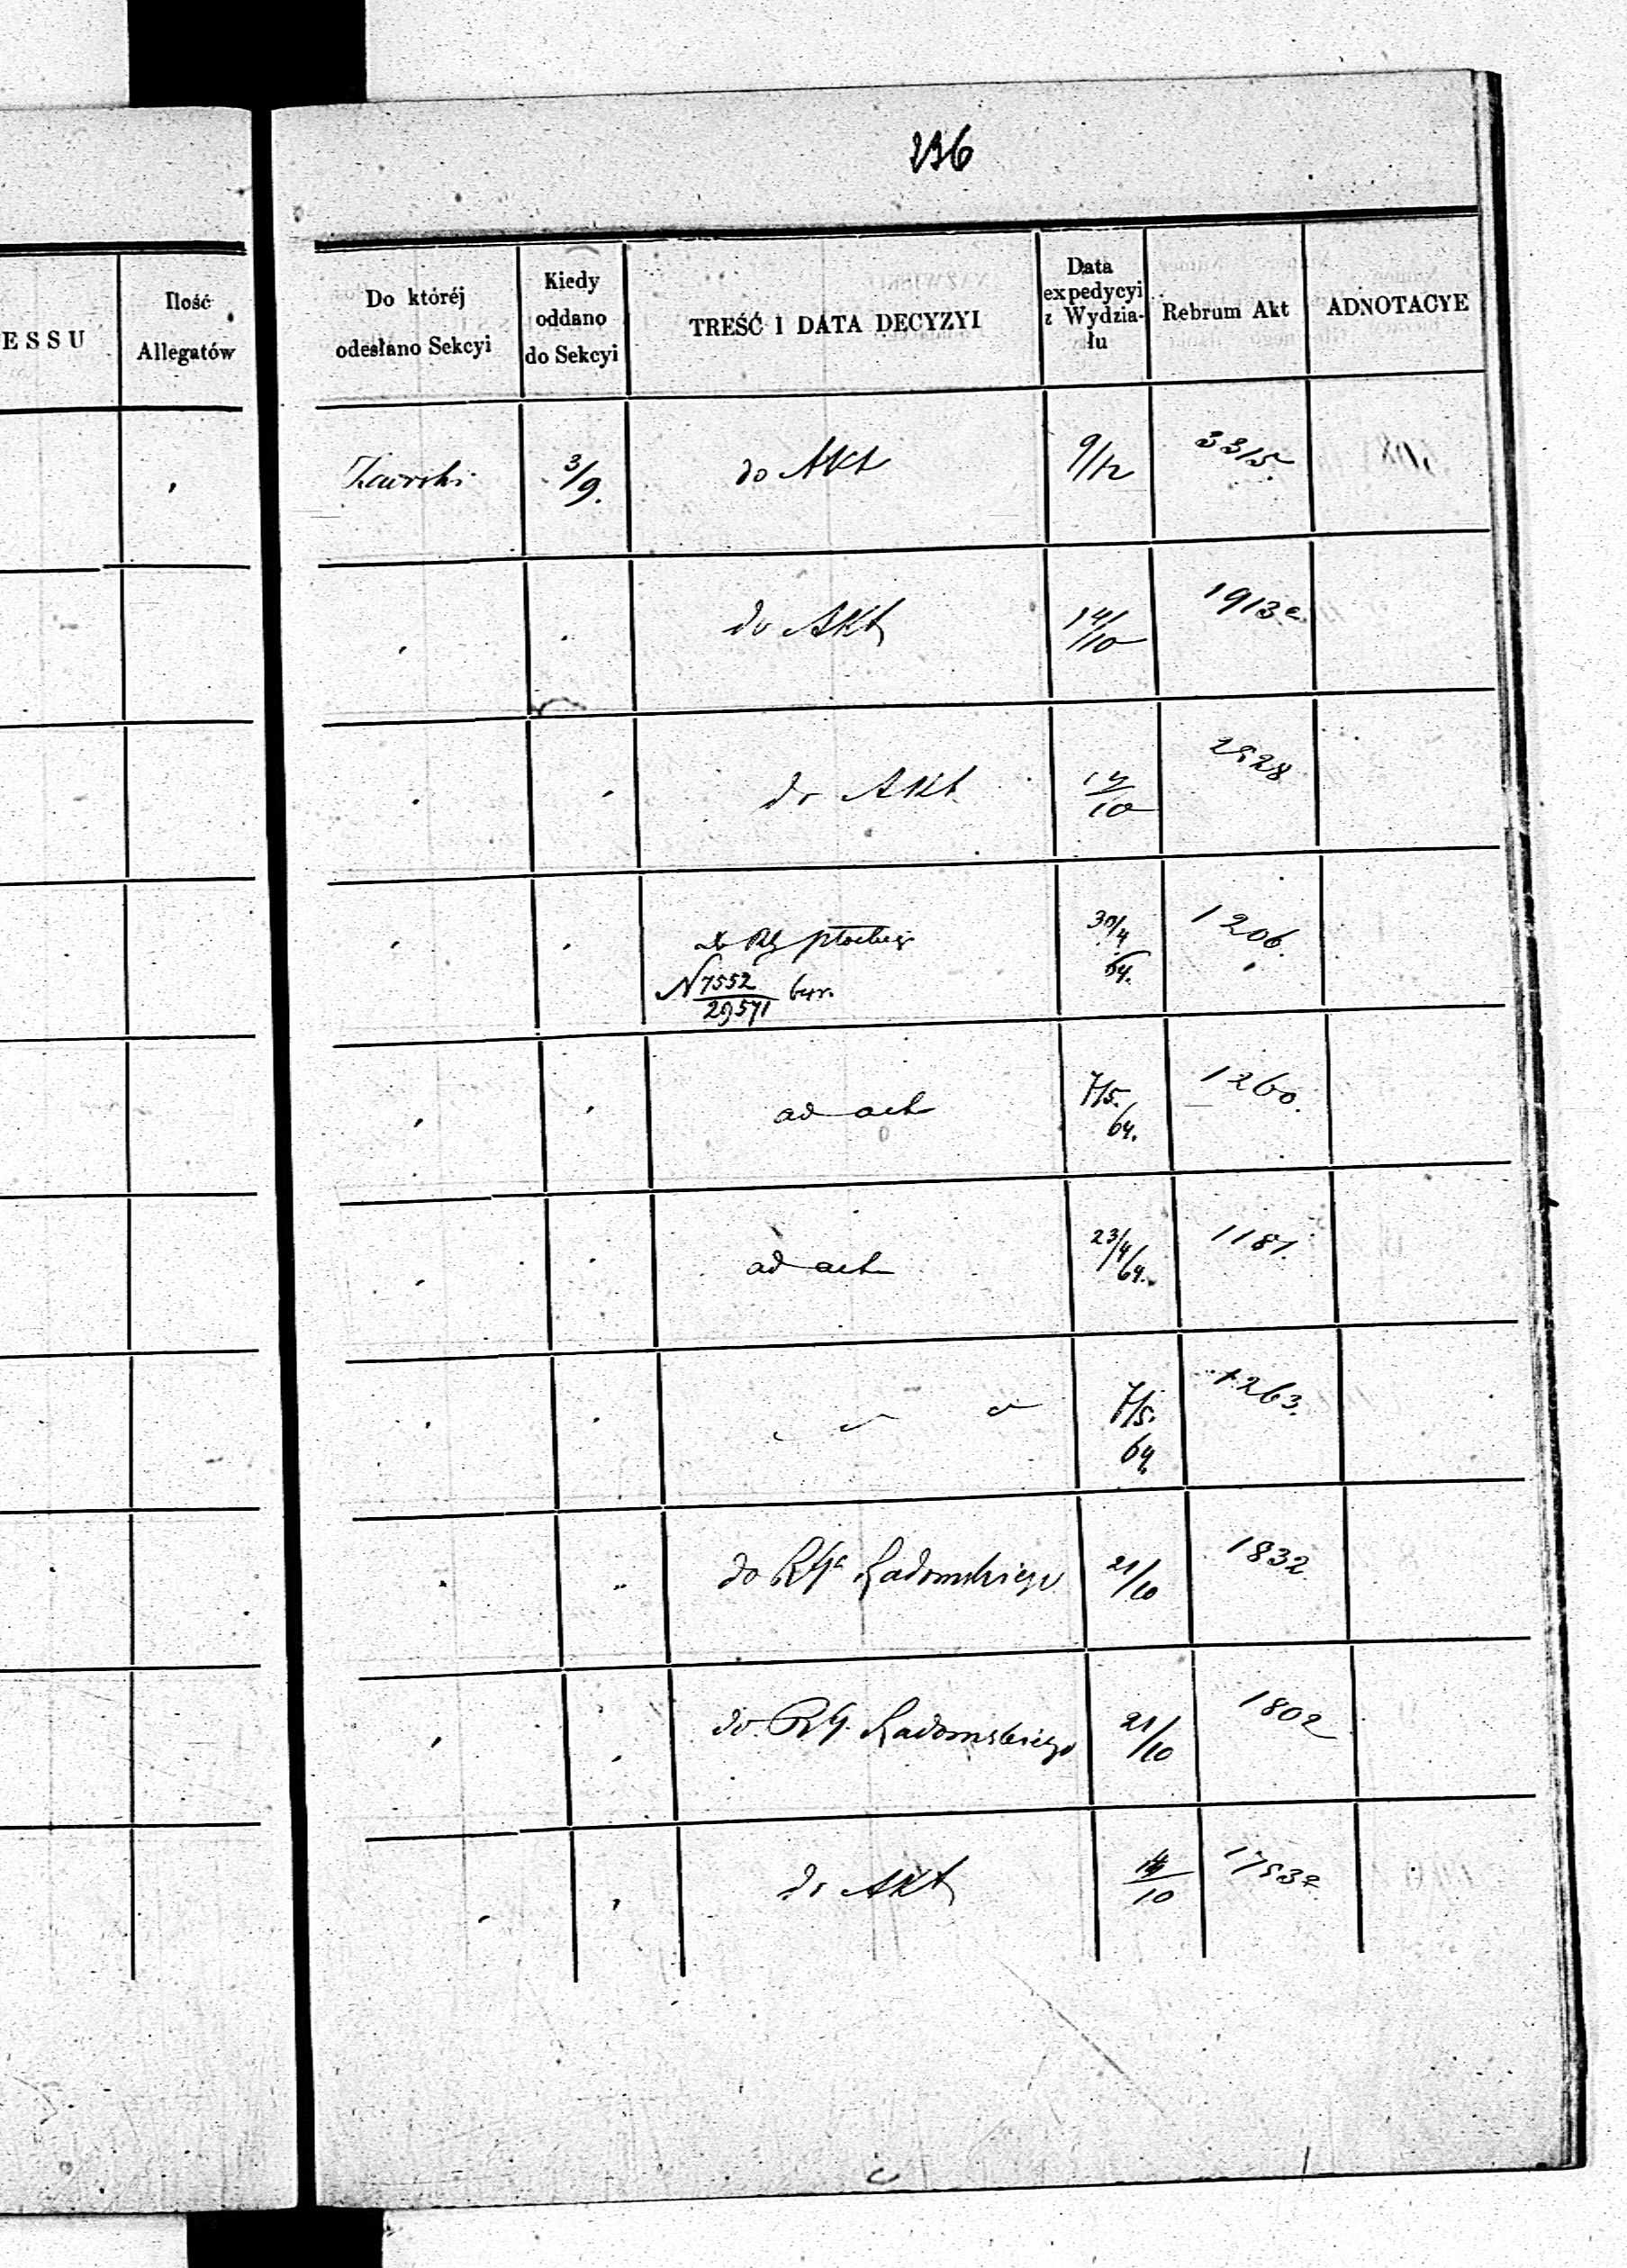 236
ESSU
Ilość
Allegatów
Do któréj
odesłano Sekcyi
Kiedy
oddano
do Sekcyi
TREŚĆ I DATA DECYZYI
Data
expedycyi
z Wydzia-
łu
Rebrum Akt
ADNOTACYE
3/9.
do Akt
9/12
3315
do Akt
14/10
1913 a
do Akt
10
2528
N 7552
29571
30/4
64.
1206.
ad act
7/5.
64.
1260.
ad act
23/4/64.
1181.
7/5.
64
1263.
do RGo Radomskiego
21/10
1832
do RG. Radomskiego
21/10
1802
do Akt
10